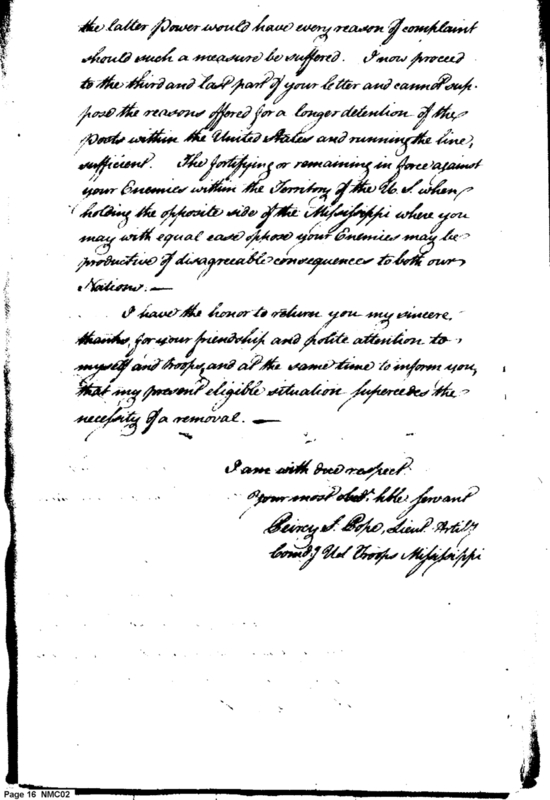 the latter Power would have every reason of complaint
should such a measure be suffered. I now proceed
to the third and last part of your letter and cannot sup-
pose the reasons offered for a longer detention of the
Posts within the United States and running the line,
sufficient. The fortifying or remaining in force against
your Enemies within the Territory of the U. S. when
holding the opposite side of the Mississippi where you
may with equal ease oppose your Enemies may be
productive of disagreeable consequences to both our
Nations. —
I have the honor to return you my sincere
thanks, for your friendship and polite attention to
myself and troops, and at the same time to inform you,
that my present eligible situation supercedes the
necessity of a removal. —
I am with due respect.
Your most obedt. hble servant
Peircy S. Pope, Lieut. Artily
Comdg Ud Troops Mississippi
Page 16 NMC02